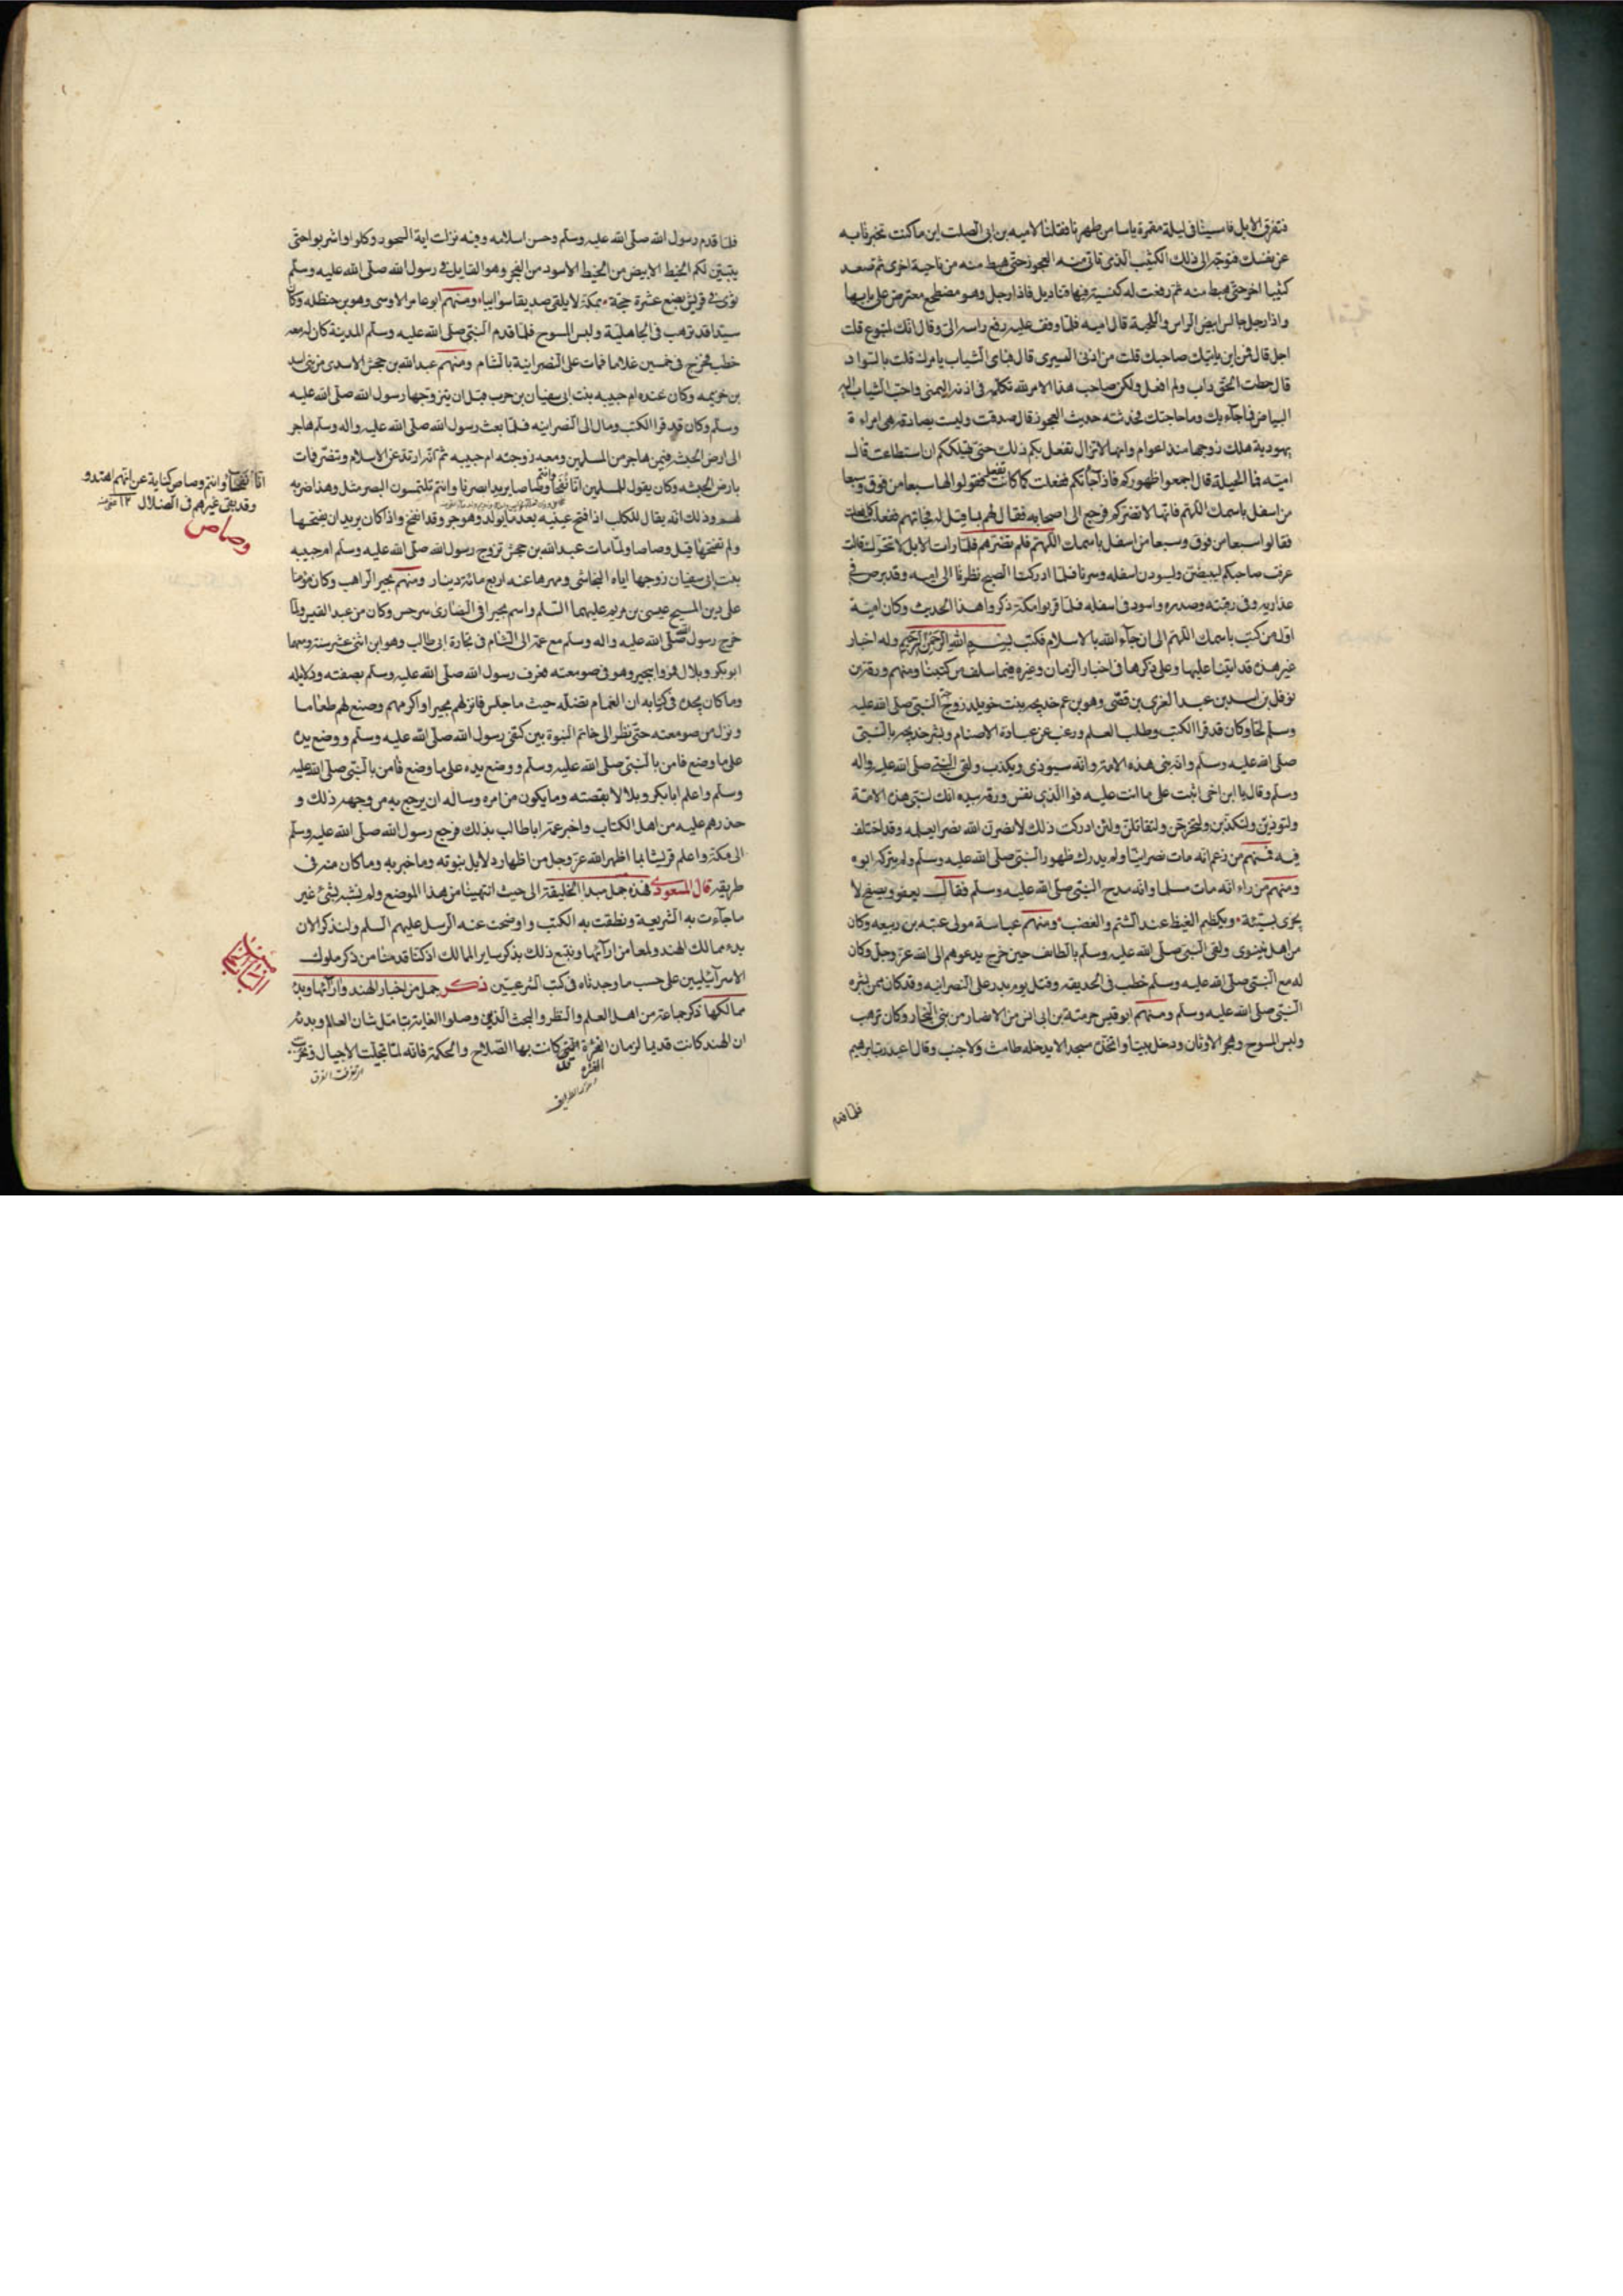 فتفرق الابل فامسينا فى ليلة مقمرة ياسا من ظهرنا فقلنا لاميه بن ابى الصلت اين ما كنت تخبرنا به
عن نفسك فتوجه الى ذلك الكثيب الذى تاتى منه العجوز حتى هبط منه من ناحية اخرى ثم صعد
كثيبا اخر حتى هبط منه ثم رفعت له كنيسة فيها قناديل فاذا رجل وهو مضطجع معترض على بابها
واذا رجل جالس ابيض الراس واللحية قال اميه فلما وقفت عليه رفع راسه الى وقال انك لمتبوع قلت
اجل قال فمن اين ياتيك صاحبك قلت من اذنى اليسرى قال فباى الثياب يامرك قلت بالسواد
قال خطت الحق داب ولم افعل ولكن صاحب هذا الامر لله تكلمه فى اذنه اليمنى واحب الثياب اليه
البياض فما جاء بك وما حاجتك فحدثته حديث العجوز قال صدقت وليست بصادقة هى امراة
يهودية هلك زوجها منذ اعوام وانها لا تزال تفعل بكم ذلك حتى تهلككم ان استطاعت قال
اميه فما الحيلة قال اجمعوا ظهوركم فاذا جاءتكم ففعلت كما كانت تفعل فقولوا لها سبعا من فوق وسبعا
من اسفل باسمك اللهم فانها لا تضركم فرجع الى اصحابه فقال لهم ما قيل له فجاتهم ففعلت كما فعلت
فقالوا سبعا من فوق وسبعا من اسفل باسمك اللهم فلم تضرهم فلما رات الابل لا تتحرك قالت
عرفت صاحبكم ليبيضن وليسودن اسفله وسرنا فلما ادركنا الصبح نظرنا الى اميه وقد برص فى
عذاريه وفى رقبته وصدره واسود فى اسفله فلما قربوا مكة ذكروا هذا الحديث وكان امية
اول من كتب باسمك اللهم الى ان جاء الله بالاسلام فكتب بسم الله الرحمن الرحيم وله اخبار
غير هذه قد اتينا عليها وعلى ذكرها فى اخبار الزمان وغيره فيما سلف من كتبنا ومنهم ورقة بن
نوفل بن اسد بن عبد العزى بن قصى وهو بن عم خديجه بنت خويلد زوج النبى صلى الله عليه
وسلم لحا وكان قد قرا الكتب وطلب العلم ورغب عن عبادة الاصنام وبشر خديجه بالنبى
صلى الله عليه وسلم وانه نبى هذه الامة وانه سيوذى ويكذب ولقى النبى صلى الله عليه واله
وسلم وقال يا ابن اخى اثبت على ما انت عليه فوالذى نفس ورقه بيده انك لنبى هذه الامة
ولتوذين ولتكذبن ولتخرجن ولتقاتلن ولئن ادركت ذلك لانصرن الله نصرا يعلمه وقد اختلف
فيه فمنهم من زعم انه مات نصرانيا ولم يدرك ظهور النبى صلى الله عليه وسلم ولم يتركه ابوه
ومنهم من راء انه مات مسلما وانه مدح النبى صلى الله عليه وسلم فقال يعفو ويصفح لا
يجزى بسيئة ويكظم الغيظ عند الشتم والغضب ومنهم عباسة مولى عتبه بن ربيعه وكان
من اهل نينوى ولقى النبى صلى الله عليه وسلم بالطايف حين خرج يدعوهم الى الله عز وجل وكان
له مع النبى صلى الله عليه وسلم خطب فى الحديقه وقتل يوم بدر على النصرانيه وقد كان ممن يبشر به
النبى صلى الله عليه وسلم ومنهم ابو قيس صرمة بن ابى انس من الانصار من بنى النجار وكان ترهب
ولبس المسوح وهجر الاوثان ودخل بيتا واتخذه مسجدا لا يدخله طامث ولا جنب وقال اعبد رب ابرهيم
فلما قدم
فلما قدم رسول الله صلى الله عليه وسلم وحسن اسلامه وفيه نزلت اية السحور وكلوا واشربوا حتى
يتبين لكم الخيط الابيض من الخيط الاسود من الفجر وهو القايل فى رسول الله صلى الله عليه وسلم
ثوى فى قريش بضع عشرة حجة بمكة لا يلقى صديقا مواتيا ومنهم ابو عامر الاوسى وهو بن حنظله وكان
سيدا قد ترهب فى الجاهلية ولبس المسوح فلما قدم النبى صلى الله عليه وسلم المدينة كان له معه
خطب فخرج فى خمسين غلاما فمات على النصرانية بالشام ومنهم عبد الله بن جحش الاسدى من بنى اسد
بن خزيمه وكان عنده ام حبيبه بنت ابى سفيان بن حرب قبل ان يتزوجها رسول الله صلى الله عليه
وسلم وكان قد قرا الكتب ومال الى النصرانيه فلما بعث رسول الله صلى الله عليه واله وسلم هاجر
الى ارض الحبشه فيمن هاجر من المسلمين ومعه زوجته ام حبيبه ثم انه ارتد عن الاسلام وتنصر فمات
بارض الحبشه وكان يقول للمسلمين انا فقحنا وانتم صاصا يريد ابصرنا وانتم تلتمسون البصر مثل وهذا ضربه
لهم وذلك انه يقال للكلب اذا فتح عينيه بعد ما يولد وهو جرو قد افقح واذا كان يريد ان يفتحها
ولم تفتحها قيل وصاصا ولما مات عبد الله بن جحش تزوج رسول الله صلى الله عليه وسلم ام حبيبه
بنت ابى سفيان زوجها اياه النجاشى ومهرها عنه اربع مائة دينار ومنهم بحيرا الراهب وكان مومنا
على دين المسيح عيسى بن مريم عليهما السلم واسم بحيرا فى النصارى سرجس وكان من عبد القيس ولما
خرج رسول الله صلى الله عليه واله وسلم مع عمه الى الشام فى تجارة ابى طالب وهو ابن اثنى عشر سنة ومعهما
ابو بكر وبلال مروا ببحيرا وهو فى صومعته فعرف رسول الله صلى الله عليه وسلم بصفته ودلايله
وما كان يجده فى كتابه ان الغمام تضله حيث ما جلس فانزلهم بحيرا واكرمهم وصنع لهم طعاما
ونزل من صومعته حتى نظر الى خاتم النبوة بين كتفى رسول الله صلى الله عليه وسلم ووضع يده
على ما وضع فامن بالنبى صلى الله عليه وسلم ووضع يده على ما وضع فامن بالنبى صلى الله عليه
وسلم واعلم ابا بكر وبلالا بقصته وما يكون من امره وساله ان يرجع به من وجهه ذلك و
حذرهم عليه من اهل الكتاب واخبر عمه ابا طالب بذلك فرجع رسول الله صلى الله عليه وسلم
الى مكة واعلم قريشا بما اظهر الله عز وجل من اظهار دلايل بنوته وما خبر به وما كان منه فى
طريقه قال المسعودى فهذه جمل مبدا الخليقة الى حيث انتهينا من هذا الموضع ولم نشبه بشئ غير
ما جاءت به الشريعة ونطقت به الكتب واوضحت عنه الرسل عليهم السلم ولنذكر الان
بدء ممالك الهند ولمعا من ارآئها ونتبع ذلك بذكر ساير الممالك اذ كنا قدمنا من ذكر ملوك
الاسرآئيليين على حسب ما وجدناه فى كتب الشرعيين ذكر جمل من اخبار الهند وارآئها وبدء
ممالكها ذكر جماعة من اهل العلم والنظر والبحث الذين وصلوا الغاية بتامل شان العالم وبدئه
ان الهند كانت قديما لزمان الغرة التى كانت بها الصلاح والحكمة فانه لما تجلت الاجيال وتحزبت
الغره
انا فقحنا وانتم وصاص كناية عن انهم اهتدوا
وقد بقى غيرهم فى الضلال ١٢
وصاص